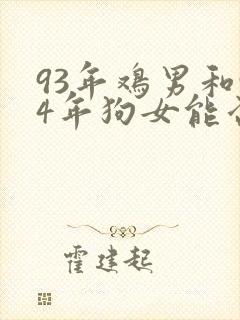 93年鸡男和
4年狗女能
霍建起